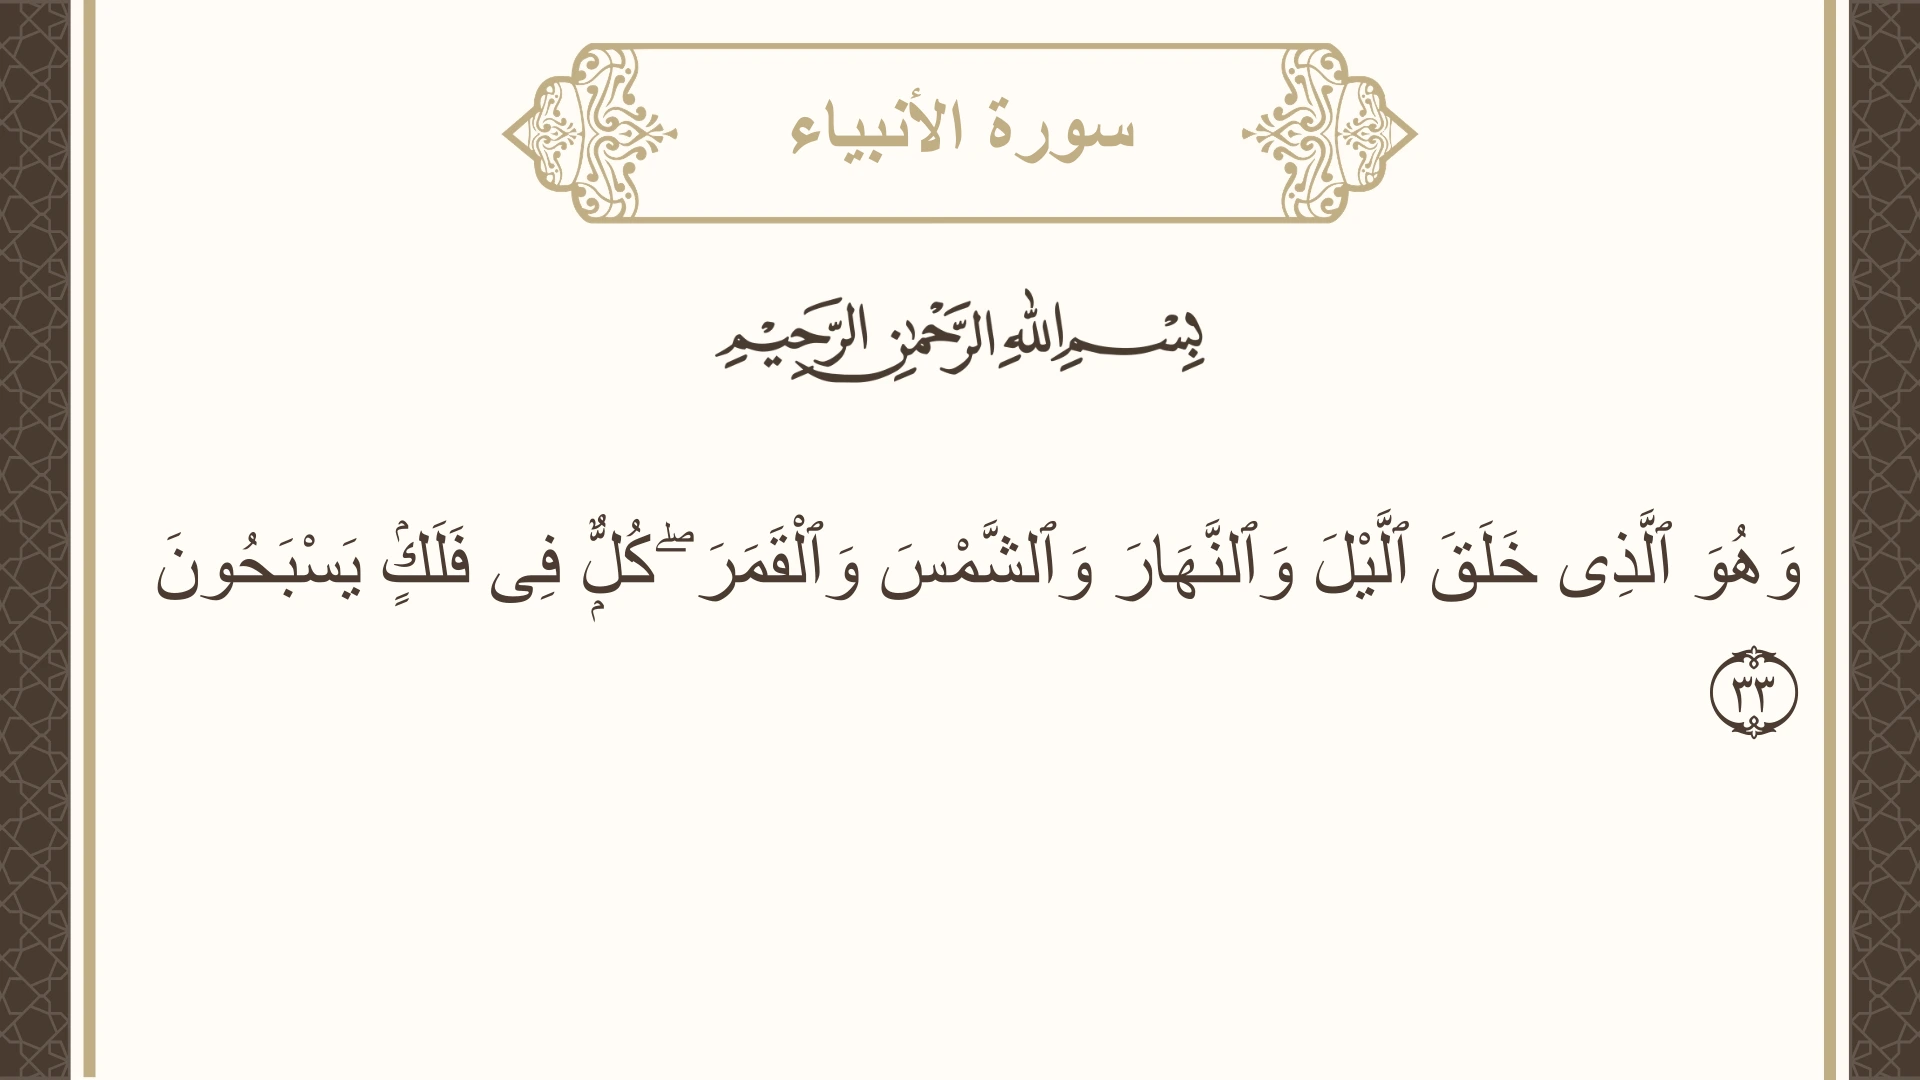 سورة الأنبياء
بِسْمِ اللهِ الرَّحْمٰنِ الرَّحِيْمِ
وَهُوَ ٱلَّذِى خَلَقَ ٱلَّيْلَ وَٱلنَّهَارَ وَٱلشَّمْسَ وَٱلْقَمَرَ ۖ كُلٌّۭ فِى فَلَكٍۢ يَسْبَحُونَ
٣٣